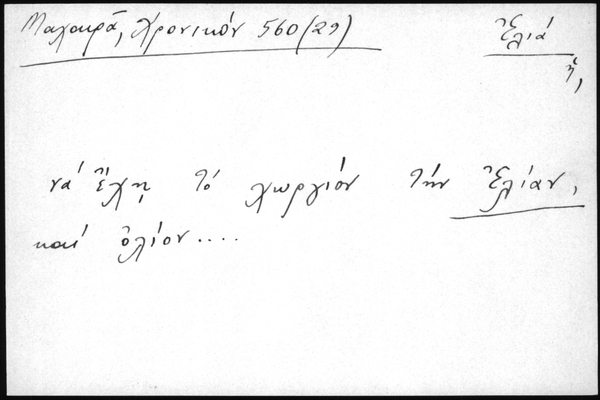 Μαχαιρᾶ, Χρονικόν 560 (29)
Ἐλιά
ἡ,
νά ἔχῃ τό χωργιόν τήν Ἐλίαν,
καί ὁλίον....